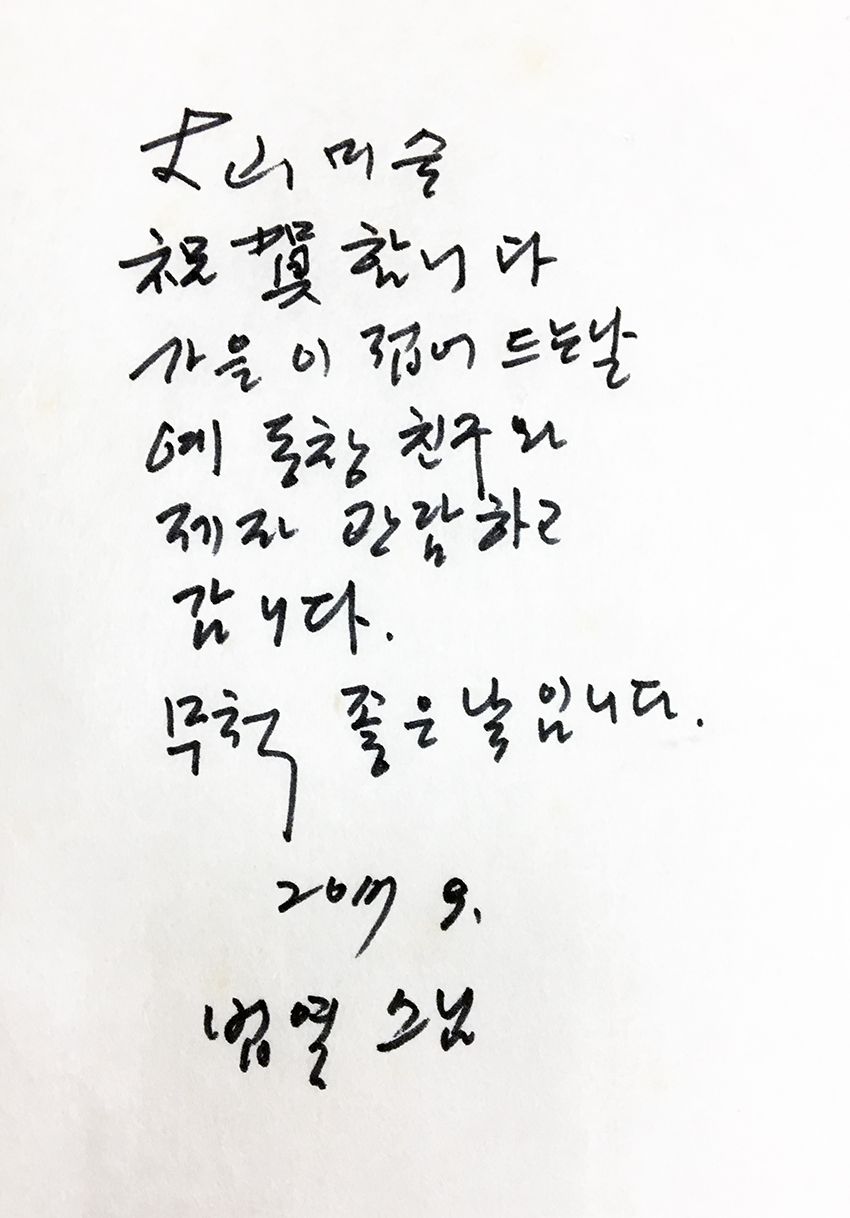 大山 미술
祝賀 합니다
가을이 접어 드는날
에 동창 친구와
제자 관람하고
갑니다.
무척 좋은 날입니다.
2017 9.
범열 스님